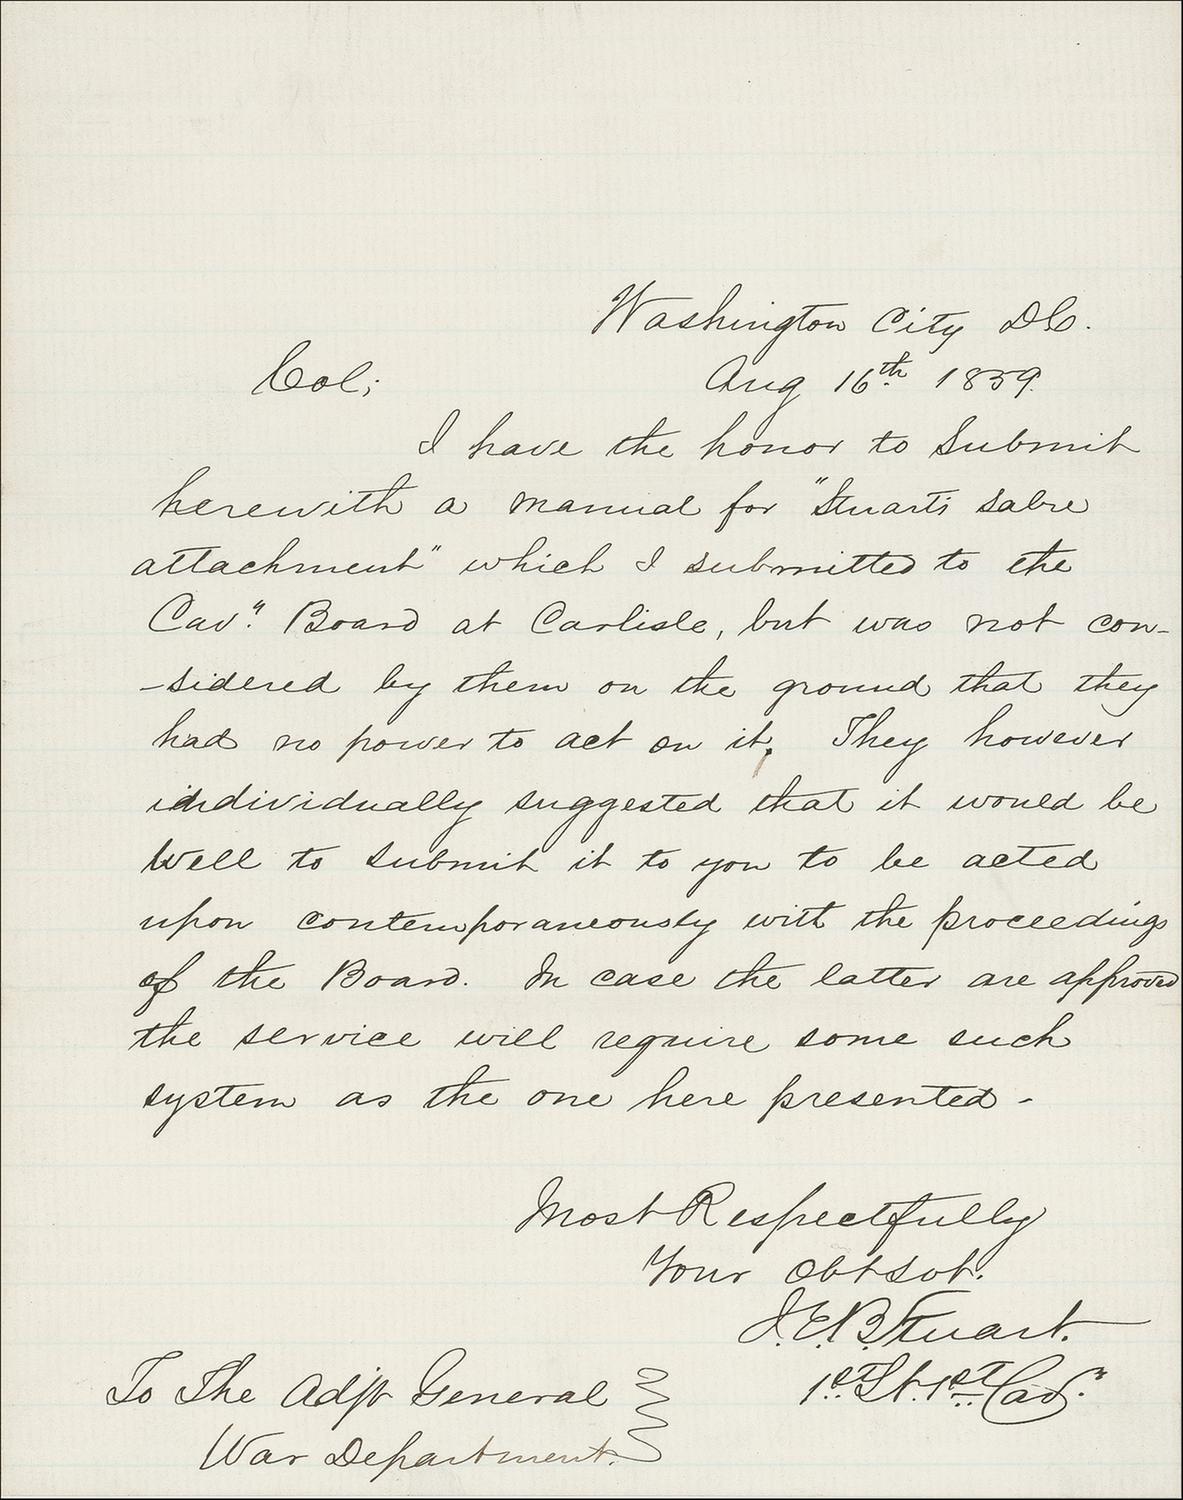 Washington City D.C.
Col; Aug 16th 1859.
I have the honor to submit
herewith a manual for "Stuart's sabre
attachment" which I submitted to the
Cavy. Board at Carlisle, but was not con-
-sidered by them on the ground that they
had no power to act on it. They however
individually suggested that it would be
well to submit it to you to be acted
upon contemporaneously with the proceedings
of the Board. In case the latter are approved
the service will require some such
system as the one here presented -
Most Respectfully
Your obt svt.
J. E. B. Stuart.
1st Lt. 1st Cavy.
To The Adjt General
War Department.